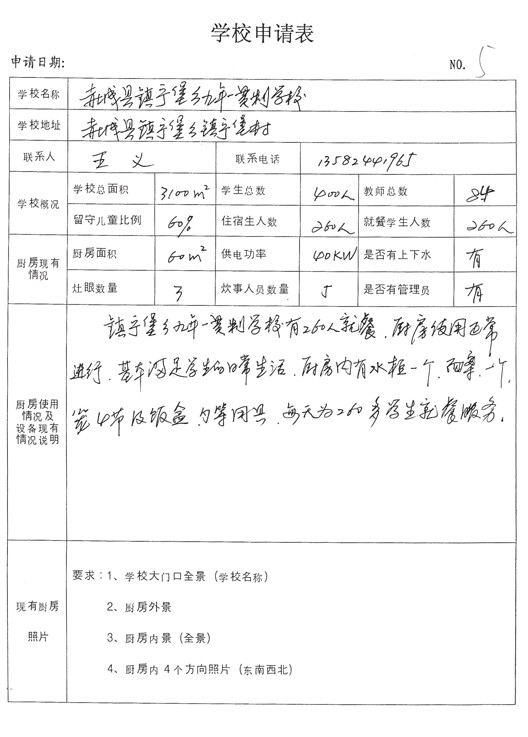 学校申请表
申请日期: NO. 5
学校名称 赤城县镇宁堡乡九年一贯制学校
学校地址 赤城县镇宁堡乡镇宁堡村
联系人 王义 联系电话 13582441965
学校概况 学校总面积 3100m² 学生总数 400人 教师总数
留守儿童比例 60% 住宿生人数 260人 就餐学生人数 260人
厨房现有情况 厨房面积 60m² 供电功率 40KW 是否有上下水 有
灶眼数量 3 炊事人员数量 5 是否有管理员 有
厨房使用情况及设备现有情况说明
镇宁堡乡九年一贯制学校有260人就餐,厨房使用正常
进行,基本满足学生的日常生活,厨房内有水柜一个,一个,
笼4节及饭盒等用具,每天为260多学生就餐服务。
现有厨房照片
要求:1、学校大门口全景(学校名称)
2、厨房外景
3、厨房内景(全景)
4、厨房内4个方向照片(东南西北)